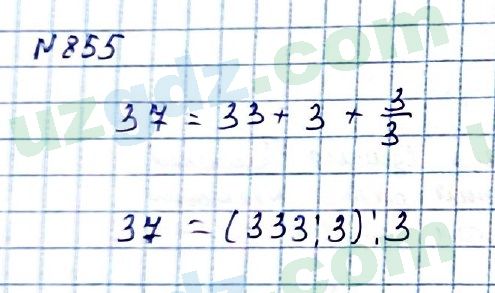 N855
37 = 33 + 3 + 3/3
37 = (333:3):3
uzgdz.com